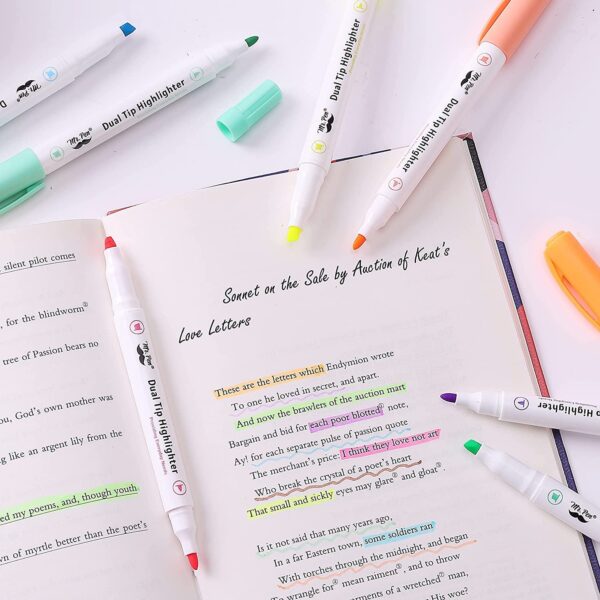 Mr. Pen®
Dual Tip Highlighter
Mr. Pen®
Dual Tip Highlighter
Mr. Pen®
Dual Tip Highlighter
Mr. Pen®
Dual Tip Highlighter
silent pilot comes
, for the blindworm②
tree of Passion bears no
ou, God's own mother was
ng like an argent lily from the
ed my poems, and, though youth
wn of myrtle better than the poet's
Mr. Pen®
Dual Tip Highlighter
Sonnet on the Sale by Auction of Keat's
Love Letters
These are the letters which Endymion wrote
To one he loved in secret, and apart.
And now the brawlers of the auction mart
Bargain and bid for each poor blotted② note,
Ay! for each separate pulse of passion quote
The merchant's price: I think they love not art
Who break the crystal of a poet's heart
That small and sickly eyes may glare③ and gloat④.
Is it not said that many years ago,
In a far Eastern town, some soldiers ran
With torches through the midnight, and began
To wrangle for⑤ mean raiment⑥, and to throw
garments of a wretched⑧ man,
His woe?
Dual Tip Highlighter
Mr. Pen®